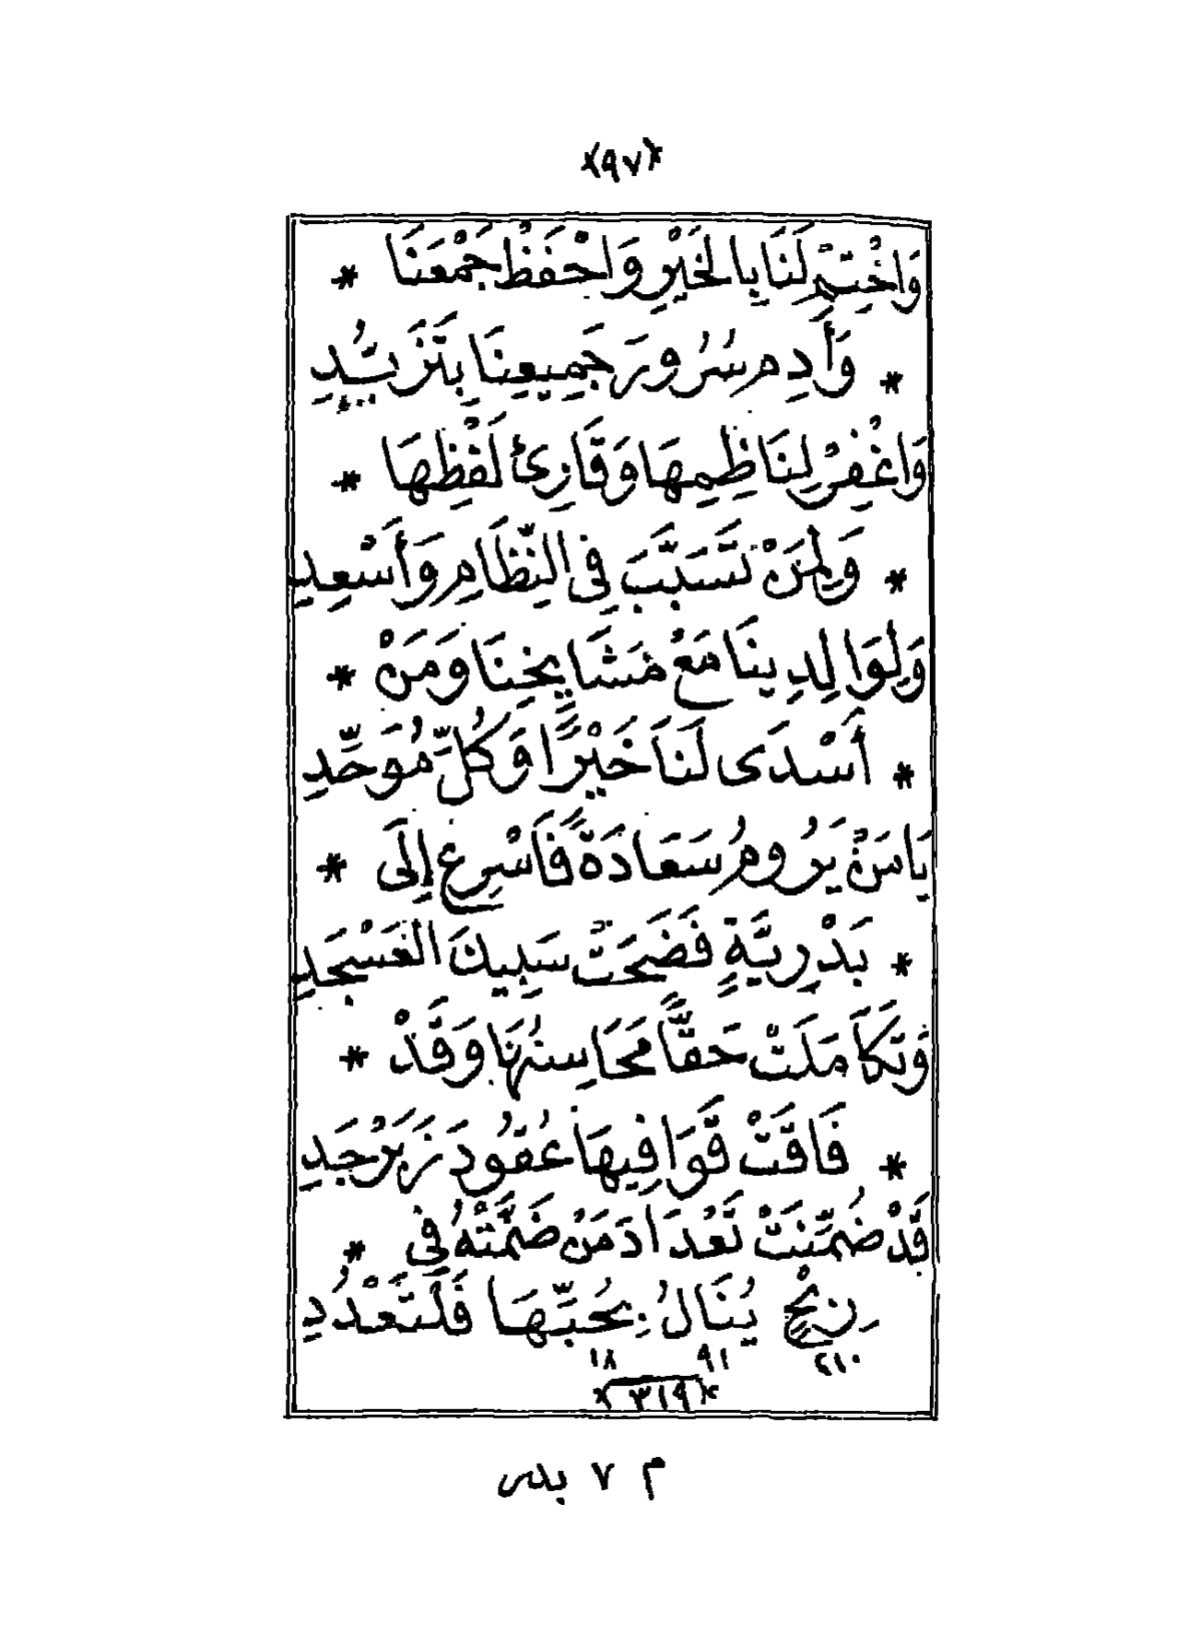 ﴿٩٧﴾
وَاخْتِمْ لَنَا بِالْخَيْرِ وَاحْفَظْ جَمْعَنَا *
* وَأَدِم سُرُورَ جَمِيعِنَا بِتَزَيُّدِ
وَاغْفِرْ لِنَاظِمِهَا وَقَارِئِ لَفْظِهَا *
* وَلِمَنْ تَسَبَّبَ فِي النِّظَامِ وَأَسْعِدِ
وَلِوَالِدِينَا مَعْ مَشَايِخِنَا وَمَنْ *
* أَسْدَى لَنَا خَيْرًا وَكُلِّ مُوَحِّدِ
يَا مَنْ يَرُومُ سَعَادَةً فَأَسْرِعْ إِلَى *
* بَدْرِيَّةٍ فَضَحَتْ سَبِيكَ الْعَسْجَدِ
وَتَكَامَلَتْ حَقًّا مَحَاسِنُهَا وَقَدْ *
* فَاقَتْ قَوَافِيهَا عُقُودَ زَبَرْجَدِ
قَدْ ضُمِّنَتْ تَعْدَادَ مَنْ ضَمَّتْهُ فِي *
يُنَالُ بِحُبِّهَا فَلْتَعْدُدِ
٢١٠ ٩١ ١٨
﴿٣١٩﴾
م ٧ بدر